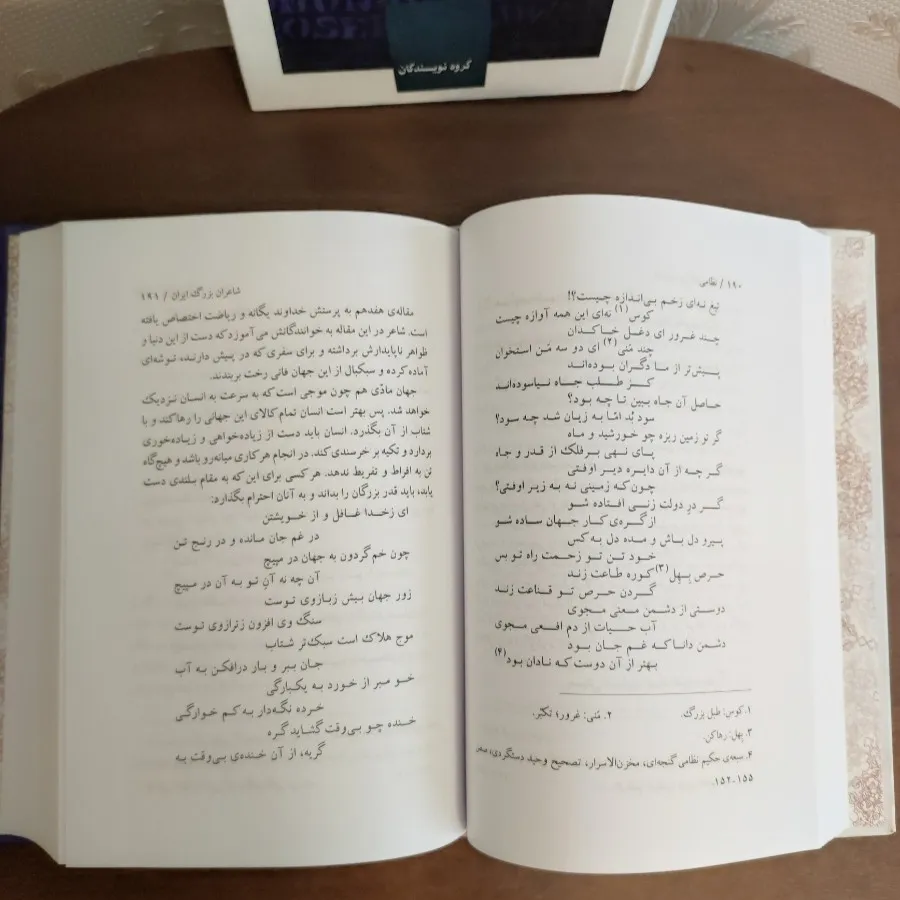 گروه نویسندگان
۱۹۰ / نظامی
تیغ نه‌ای زخم بی‌اندازه چیست؟!
کوس(۱) نه‌ای این همه آوازه چیست
چند غرور ای دغل خاکدان
چند مَنی(۲) ای دو سه مَن استخوان
پیش‌تر از ما دگران بوده‌اند
کز طلب جاه نیاسوده‌اند
حاصل آن جاه ببین تا چه بود؟
سود بُد امّا به زیان شد چه سود؟
گر تو زمین ریزه چو خورشید و ماه
پای نهی بر فلک از قدر و جاه
گر چه از آن دایره دیر اوفتی
چون که زمینی نه به زیر اوفتی؟
گر درِ دولت زنی افتاده شو
از گره‌ی کار جهان ساده شو
پیرو دل باش و مده دل به کس
خود تن تو زحمت راه تو بس
حرص بِهِل(۳) کو ره طاعت زند
گردن حرص تو قناعت زند
دوستی از دشمن معنی مجوی
آب حیات از دم افعی مجوی
دشمن دانا که غم جان بود
بهتر از آن دوست که نادان بود(۴)
۱.کوس: طبل بزرگ. ۲. مَنی: غرور؛ تکبّر.
۳. بِهِل: رهاکن.
۴. سبعه‌ی حکیم نظامی گنجه‌ای، مخزن‌الاسرار، تصحیح وحید دستگردی، صص
۱۵۵-۱۵۲.
شاعران بزرگ ایران / ۱۹۱
مقاله‌ی هفدهم به پرستش خداوند یگانه و ریاضت اختصاص یافته
است. شاعر در این مقاله به خوانندگانش می آموزد که دست از این دنیا و
ظواهر ناپایدارش برداشته و برای سفری که در پیش دارند، توشه‌ای
آماده کرده و سبکبال از این جهان فانی رخت بربندند.
جهان مادّی هم چون موجی است که به سرعت به انسان نزدیک
خواهد شد. پس بهتر است انسان تمام کالای این جهانی را رها کند و با
شتاب از آن بگذرد. انسان باید دست از زیاده‌خواهی و زیاده‌خوری
بردارد و تکیه بر خرسندی کند. در انجام هر کاری میانه‌رو باشد و هیچ‌گاه
تن به افراط و تفریط ندهد. هر کسی برای این که به مقام بلندی دست
یابد، باید قدر بزرگان را بداند و به آنان احترام بگذارد:
ای زخدا غافل و از خویشتن
در غم جان مانده و در رنج تن
چون خم گردون به جهان در مپیچ
آن چه نه آنِ تو به آن در مپیچ
زور جهان بیش زبازوی توست
سنگ وی افزون زترازوی توست
موج هلاک است سبک‌تر شتاب
جان ببر و بار درافکن به آب
خو مبر از خورد به یکبارگی
خرده نگه‌دار به کم خوارگی
خنده چو بی‌وقت گشاید گره
گریه، از آن خنده‌ی بی‌وقت به